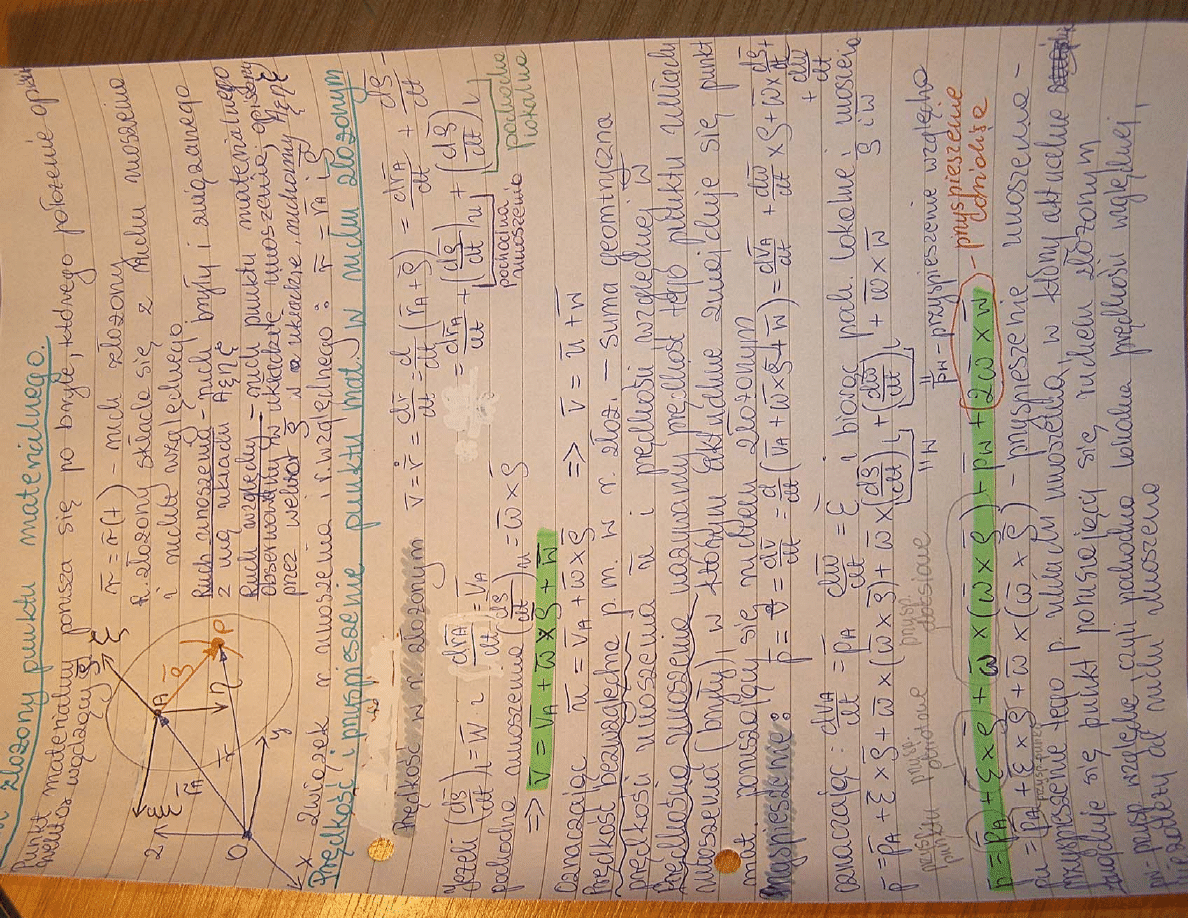 złożony punktu materialnego.
Punkt materialny porusza się po bryle, którego położenie
wektor wodzący ρ̄
r̄ = r̄(t) - ruch złożony
R. złożony składa się z ruchu unoszenia
i ruchu względnego
Ruch unoszenia - ruch bryły i związanego
z nią układu Aξηζ
Ruch względny - ruch punktu materialnego
obserwowany w układzie unoszenia, opisany
przez wektor ρ̄ w układzie ruchomym Aξηζ
z
ζ
ξ
A
r̄A
ρ̄
P
η
r̄
O
y
x
Związek r. unoszenia i r. względnego : r̄ = r̄A + ρ̄
Prędkość i przyspieszenie punktu mat. w ruchu złożonym
Prędkość w r. złożonym v̄ = r̄˙ = dr̄/dt = d/dt (r̄A + ρ̄) = dr̄A/dt + dρ̄/dt =
= dr̄A/dt + (dρ̄/dt)u + (dρ̄/dt)l
pochodna unoszenia
pochodna lokalna
Jeżeli (dρ̄/dt)l = w̄ i dr̄A/dt = v̄A
pochodna unoszenia (dρ̄/dt)u = ω̄ × ρ̄
=> v̄ = v̄A + ω̄ × ρ̄ + w̄
Oznaczając ū = v̄A + ω̄ × ρ̄ => v̄ = ū + w̄
Prędkość bezwzględna p. m. w r. złoż. - suma geomtryczna
prędkości unoszenia ū i prędkości względnej w̄
Prędkością unoszenia nazywamy prędkość tego punktu układu
unoszenia (bryły), w którym aktualnie znajduje się punkt
mat. poruszający się ruchem złożonym
Przyspieszenie: p̄ = v̄˙ = dv̄/dt = d/dt (v̄A + ω̄ × ρ̄ + w̄) = dv̄A/dt + dω̄/dt × ρ̄ + ω̄ × dρ̄/dt +
+ dw̄/dt
oznaczając: dv̄A/dt = p̄A dω̄/dt = ε̄ i biorąc poch. lokalne i unoszenia
ρ̄ i w̄
p̄ = p̄A + ε̄ × ρ̄ + ω̄ × (ω̄ × ρ̄) + ω̄ × (dρ̄/dt)l + (dw̄/dt)l + ω̄ × w̄
= w̄
p̄w - przyspieszenie względne
przysp. punktu
przysp. obrotowe
przysp. dośiowe
p̄ = p̄A + ε̄ × ρ̄ + ω̄ × (ω̄ × ρ̄) + p̄w + 2ω̄ × w̄ - przyspieszenie Coriolisa
p̄u = p̄A + ε̄ × ρ̄ + ω̄ × (ω̄ × ρ̄) - przyspieszenie unoszenia -
przyspieszenie tego p. układu unoszenia, w który aktualnie
znajduje się punkt poruszający się ruchem złożonym
p̄w - przysp. względne czyli pochodna lokalna prędkości względnej,
niezależy od ruchu unoszenia